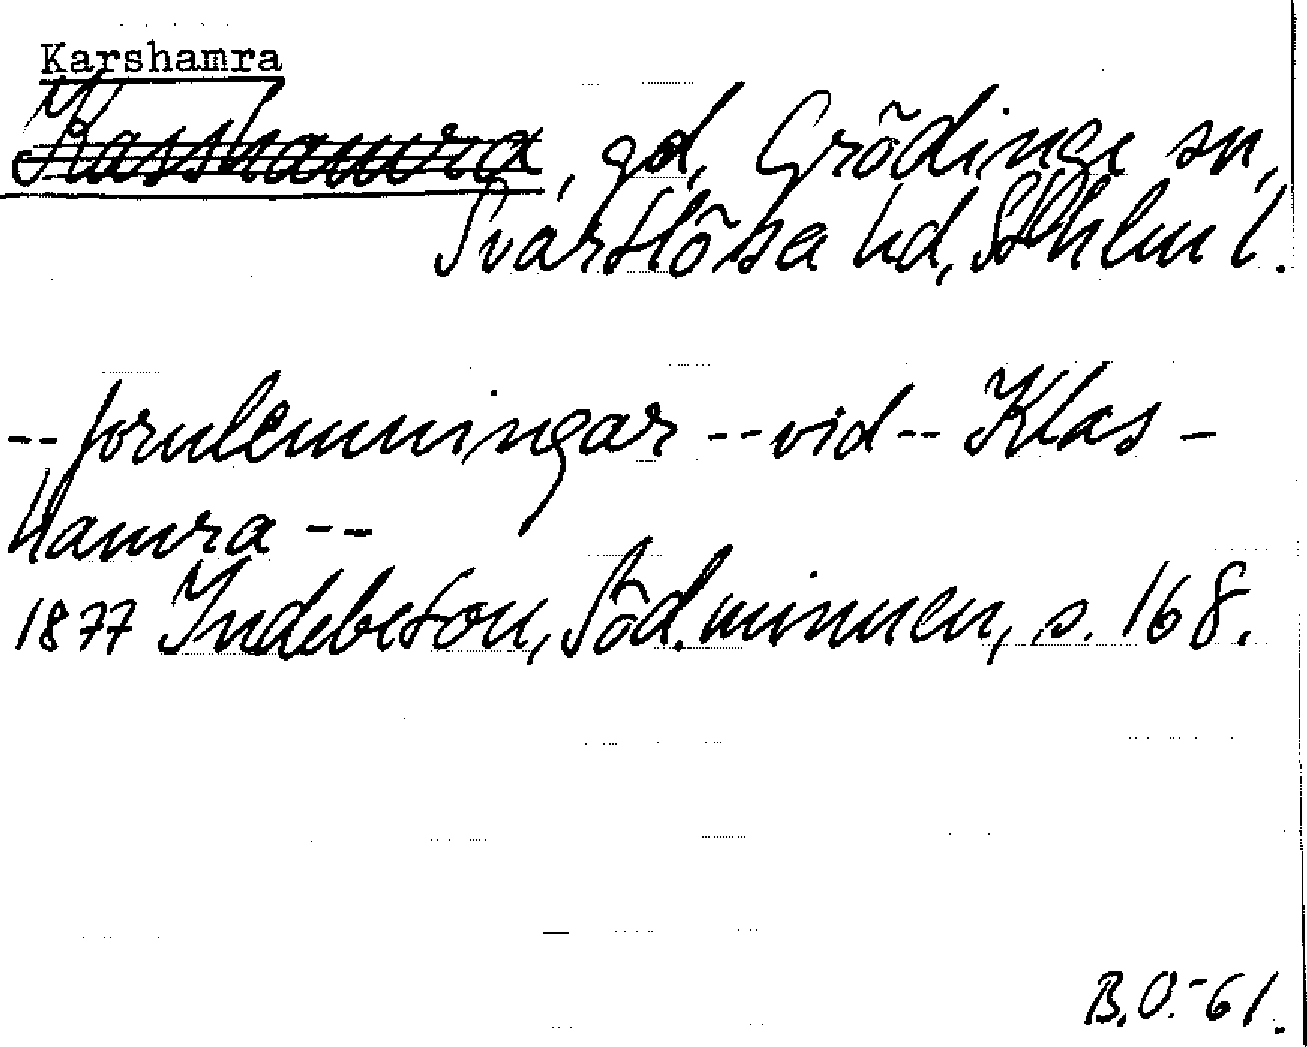 Karshamra
Kasshamra, gd, Grödinge sn,
Svartlösa hd, Sthlm l.
-- fornlemningar -- vid -- Klas-
hamra --
1877 Indebetou, Söd. minnen, s. 168.
B.O.-61.